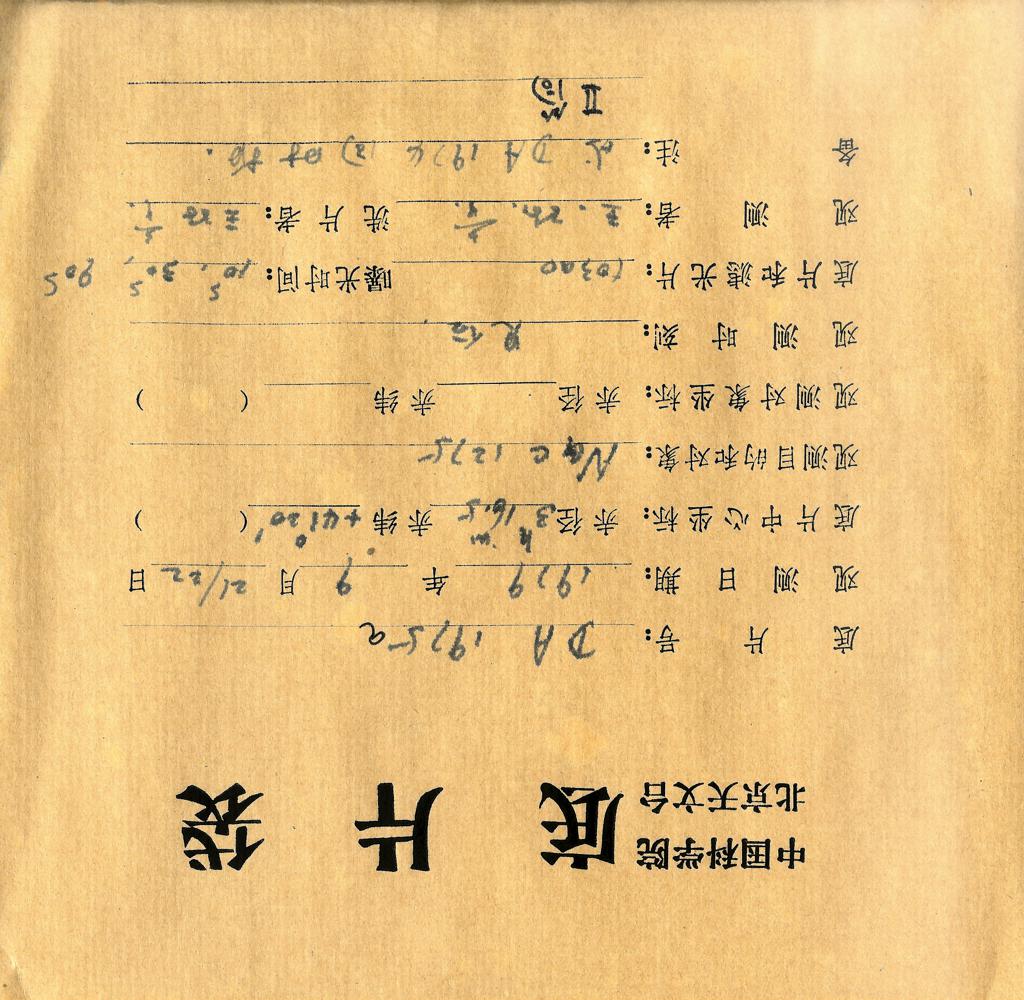 中国科学院
北京天文台
底 片 袋
底 片 号: DA 1975a
观 测 日 期: 1979 年 9 月 21/22 日
底片中心坐标: 赤径 3ʰ16ᵐ.5 赤纬 +41°20′ ( )
观测目的和对象: NGC 1275
观测对象坐标: 赤径 赤纬 ( )
观 测 时 刻: 见后
底片和滤光片: 103aO 曝光时间: 10ˢ, 30ˢ, 90ˢ
观 测 者: 洗片者:
备 注: DA 197
II